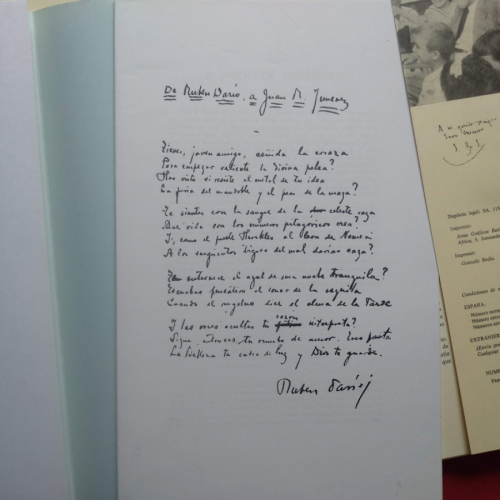 De Ruben Darío, a Juan R. Jimenez
Tienes, joven amigo, ceñida la coraza
Para empezar valiente la divina pelea?
Has visto si resiste el metal de tu idea
La furia del mandoble y el peso de la maza?
Te sientes con la sangre de la celeste raza
Que vida con los números pitagóricos crea?
Y, como el fuerte Herakles al leon de Nemea
A los sangrientos tigres del mal darias caza?
Te enternece el azul de una noche tranquila?
Escuchas pensativo el sonar de la esquila
Cuando el angelus dice el alma de la tarde
Y las voces ocultas tu razon interpreta?
Sigue, entonces, tu rumbo de amor. Eres poeta
La belleza te cubra de luz y Dios te guarde.
Ruben Darío
Depósito legal: SA,
Impreso:
Imprenta:
Gonzalo Bedia
Condiciones
ESPAÑA.
Número
Número
EXTRANJER
(Envío
Cualquier
NUM